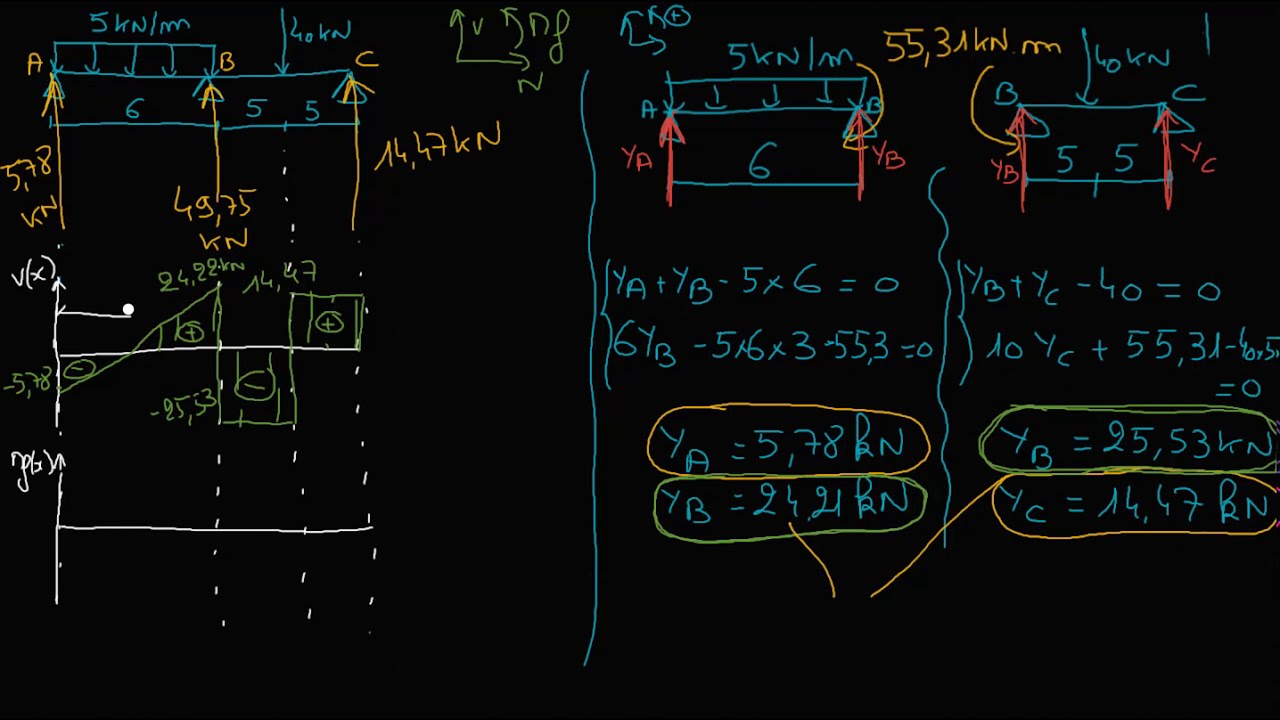 5kN/m
40kN
A
B
C
6
5
5
5,78
kN
49,75
kN
14,47kN
V
Mf
N
V(x)
24,22kN
14,47
-5,78
-25,53
+
-
-
+
Mf(x)
+
5kN/m
55,31kN.m
40kN
A
B
B
C
YA
6
YB
YB
5
5
YC
YA+YB-5×6=0
6YB-5×6×3-55,3=0
YB+YC-40=0
10YC+55,31-40×5
=0
YA=5,78kN
YB=24,21kN
YB=25,53kN
YC=14,47kN